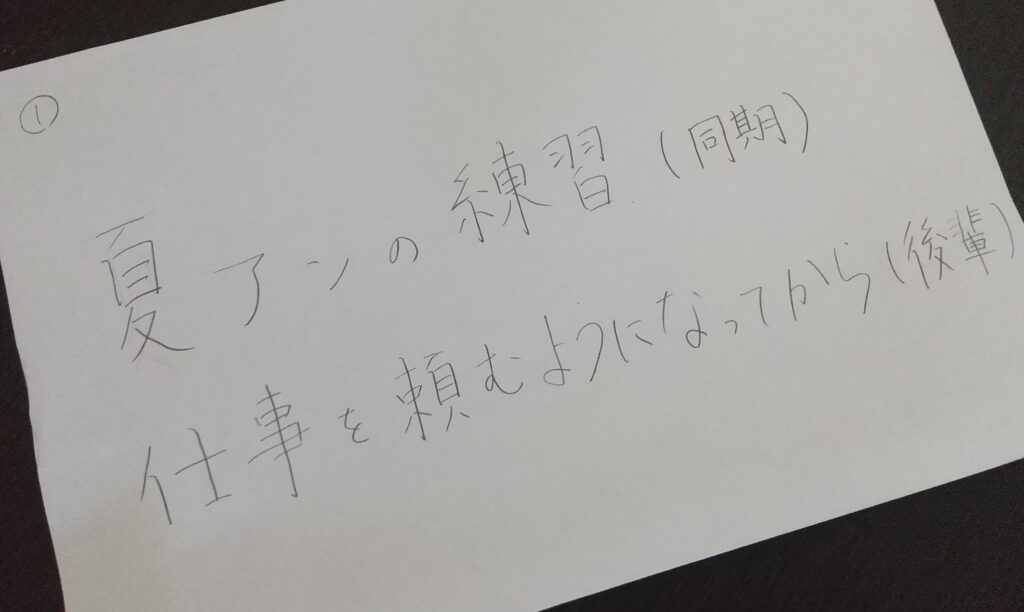 ①
夏アンの練習(同期)
仕事を頼むようになってから(後輩)